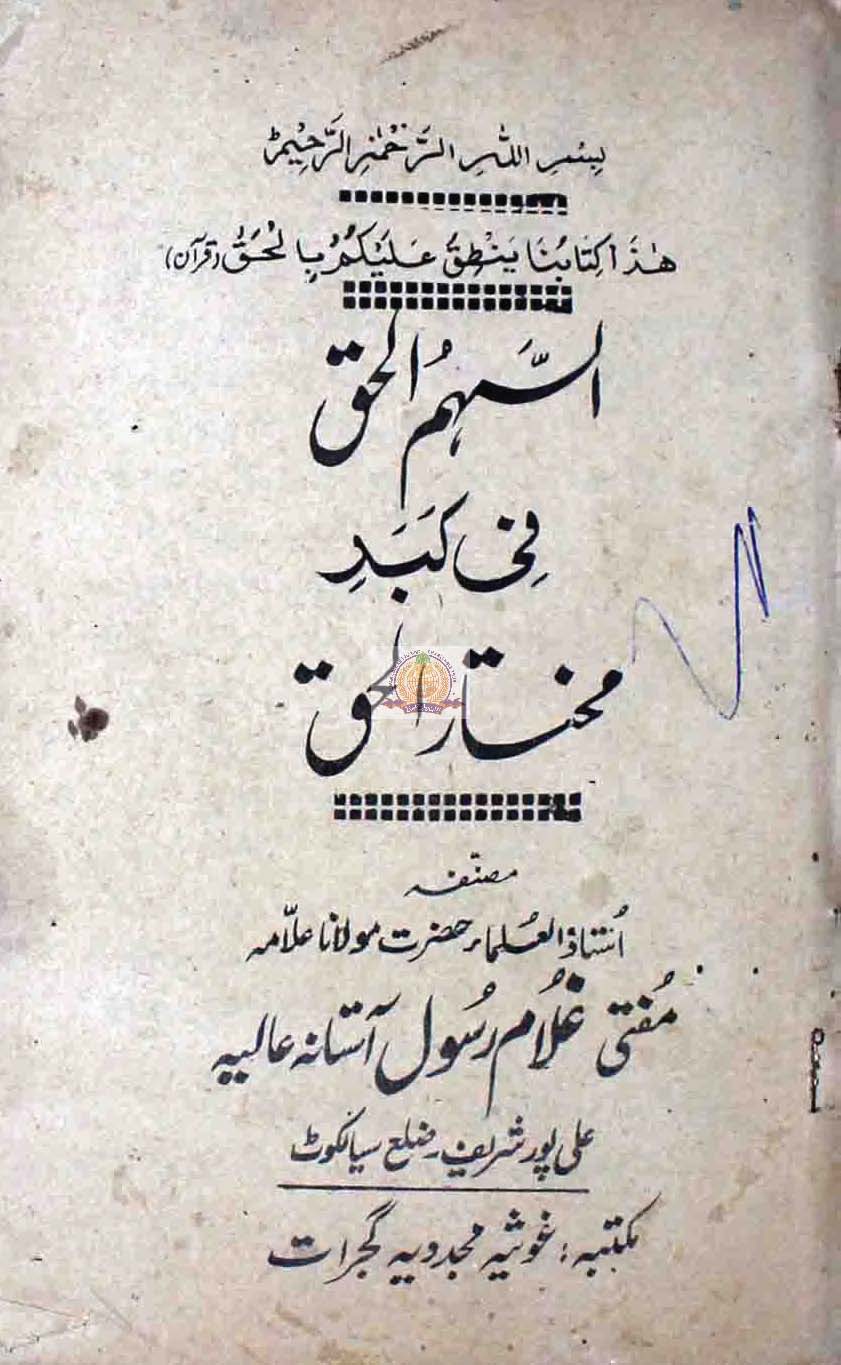 بِسْمِ اللهِ الرَّحْمٰنِ الرَّحِيْمِ
هٰذَا كِتَابُنَا يَنْطِقُ عَلَيْكُمْ بِالْحَقِّ (قرآن)
السَّہمُ الحق
فِی کَبَدِ
مختار الحق
مصنّفہ
اُستاذ العُلماء حضرت مولانا علّامہ
مُفتی غُلام رسُول آستانہ عالیہ
علی پور شریف۔ ضلع سیالکوٹ
مکتبہ: غوثیہ مجددیہ گجرات